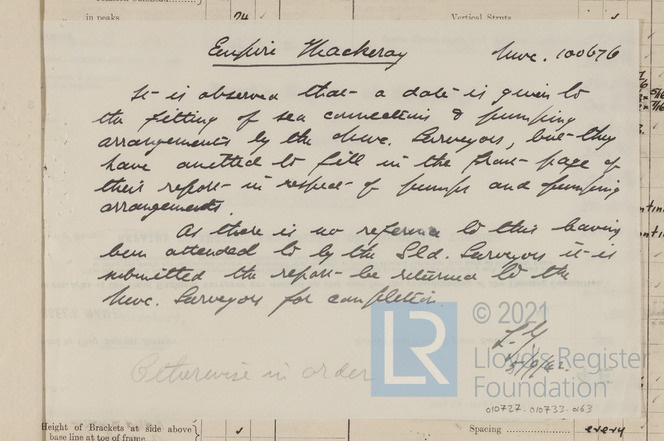 in peaks 24
Vertical Struts
Empire Thackeray Nwc. 100676
It is observed that a date is given to
the fitting of sea connections & pumping
arrangements by the Nwc. Surveyors, but they
have omitted to fill in the front page of
their report in respect of pumps and pumping
arrangements.
As there is no reference to this having
been attended to by the Sld. Surveyors it is
submitted the report be returned to the
Nwc. Surveyors for completion.
© 2021
LR
Lloyd's Register
Foundation
Otherwise in order
010727-010733-0163
Height of Brackets at side above
base line at toe of frame
Spacing every